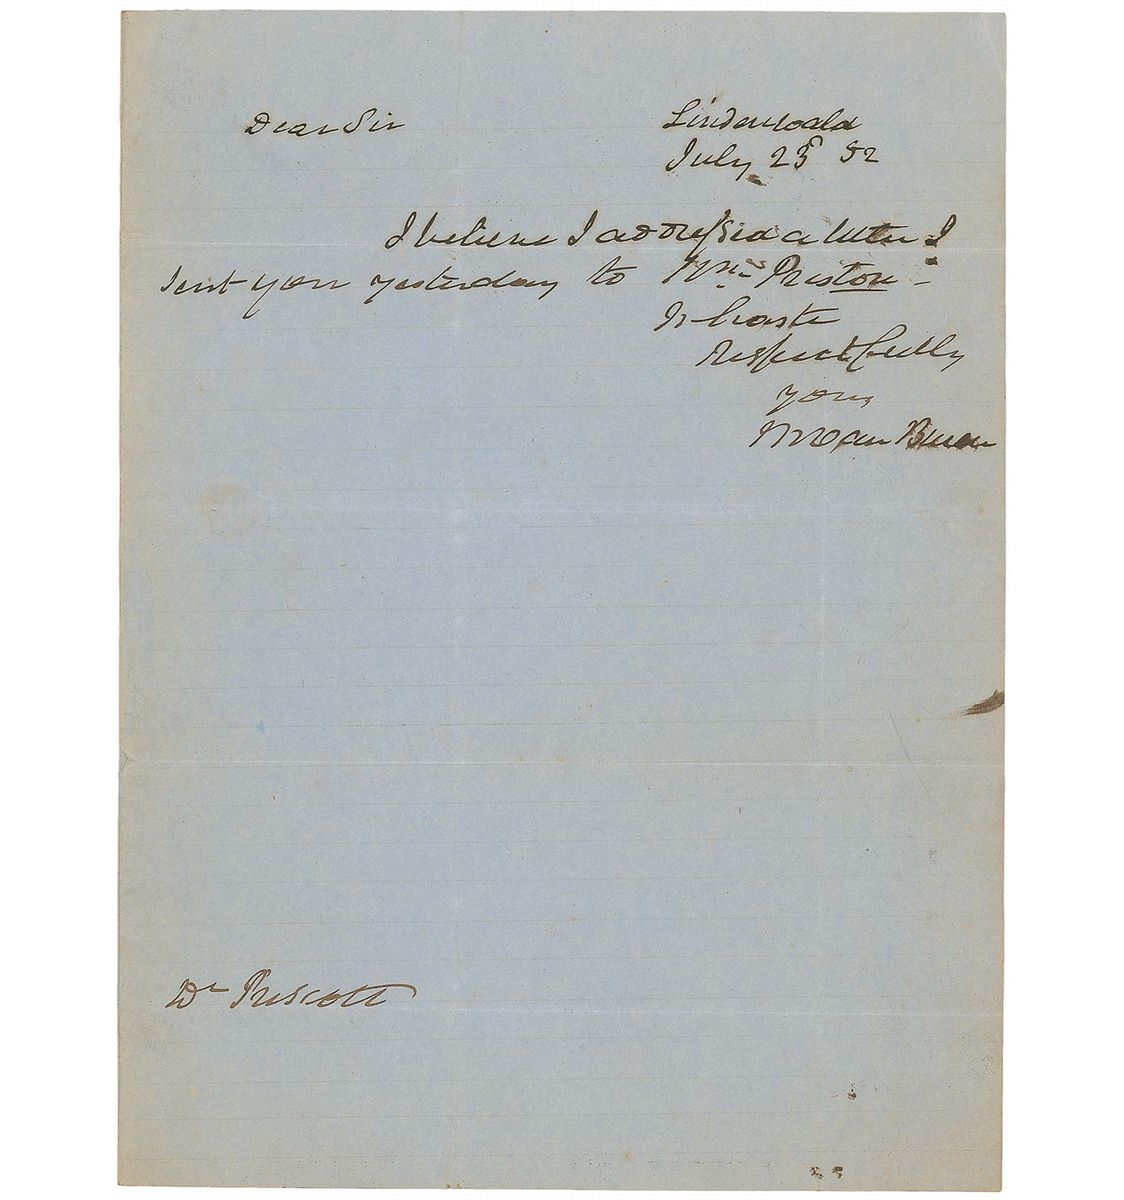 Dear Sir
Lindenwald
July 23d 52
I believe I addressed a letter I
sent you yesterday to Wm Preston -
In haste
respectfully
yours
M Van Buren
Dr Prescott